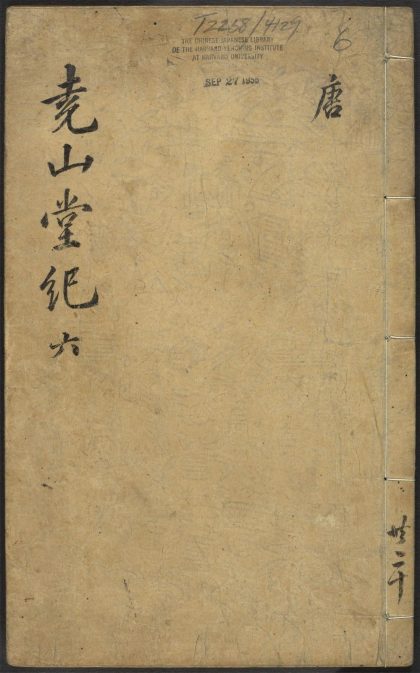 T2258/4129
THE CHINESE-JAPANESE LIBRARY
OF THE HARVARD-YENCHING INSTITUTE
AT HARVARD UNIVERSITY
SEP 27
6
唐
尭山堂紀 六
共二十